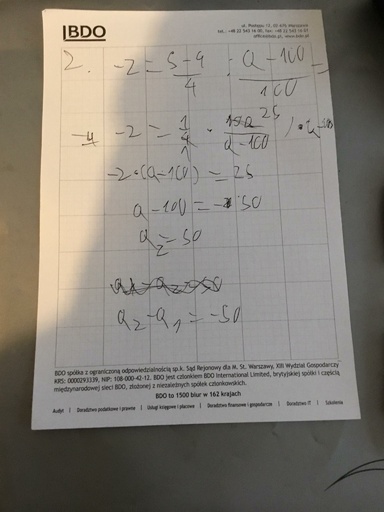 BDO
ul. Postępu 12, 02-676 Warszawa
tel.: +48 22 543 16 00, fax: +48 22 543 16 01
office@bdo.pl, www.bdo.pl
2. -2 = 5-4/4 : a-100/100 =
-2 = 1/4 · 25/a-100
-2·(a-100) = 25
a-100 = -50
a2 = 50
a2-a1 = -50
BDO spółka z ograniczoną odpowiedzialnością sp.k. Sąd Rejonowy dla M. St. Warszawy, XIII Wydział Gospodarczy
KRS: 0000293339, NIP: 108-000-42-12. BDO jest członkiem BDO International Limited, brytyjskiej spółki i częścią
międzynarodowej sieci BDO, złożonej z niezależnych spółek członkowskich.
BDO to 1500 biur w 162 krajach
Audyt | Doradztwo podatkowe i prawne | Usługi księgowe i płacowe | Doradztwo finansowe i gospodarcze | Doradztwo IT | Szkolenia